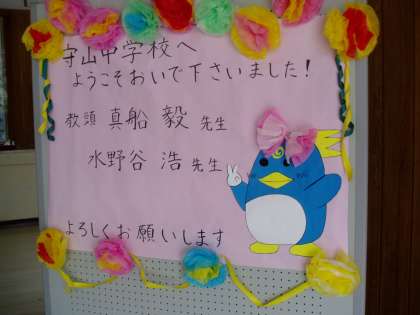 守山中学校へ
ようこそおいで下さいました!
教頭 真船 毅 先生
水野谷 浩 先生
よろしくお願いします